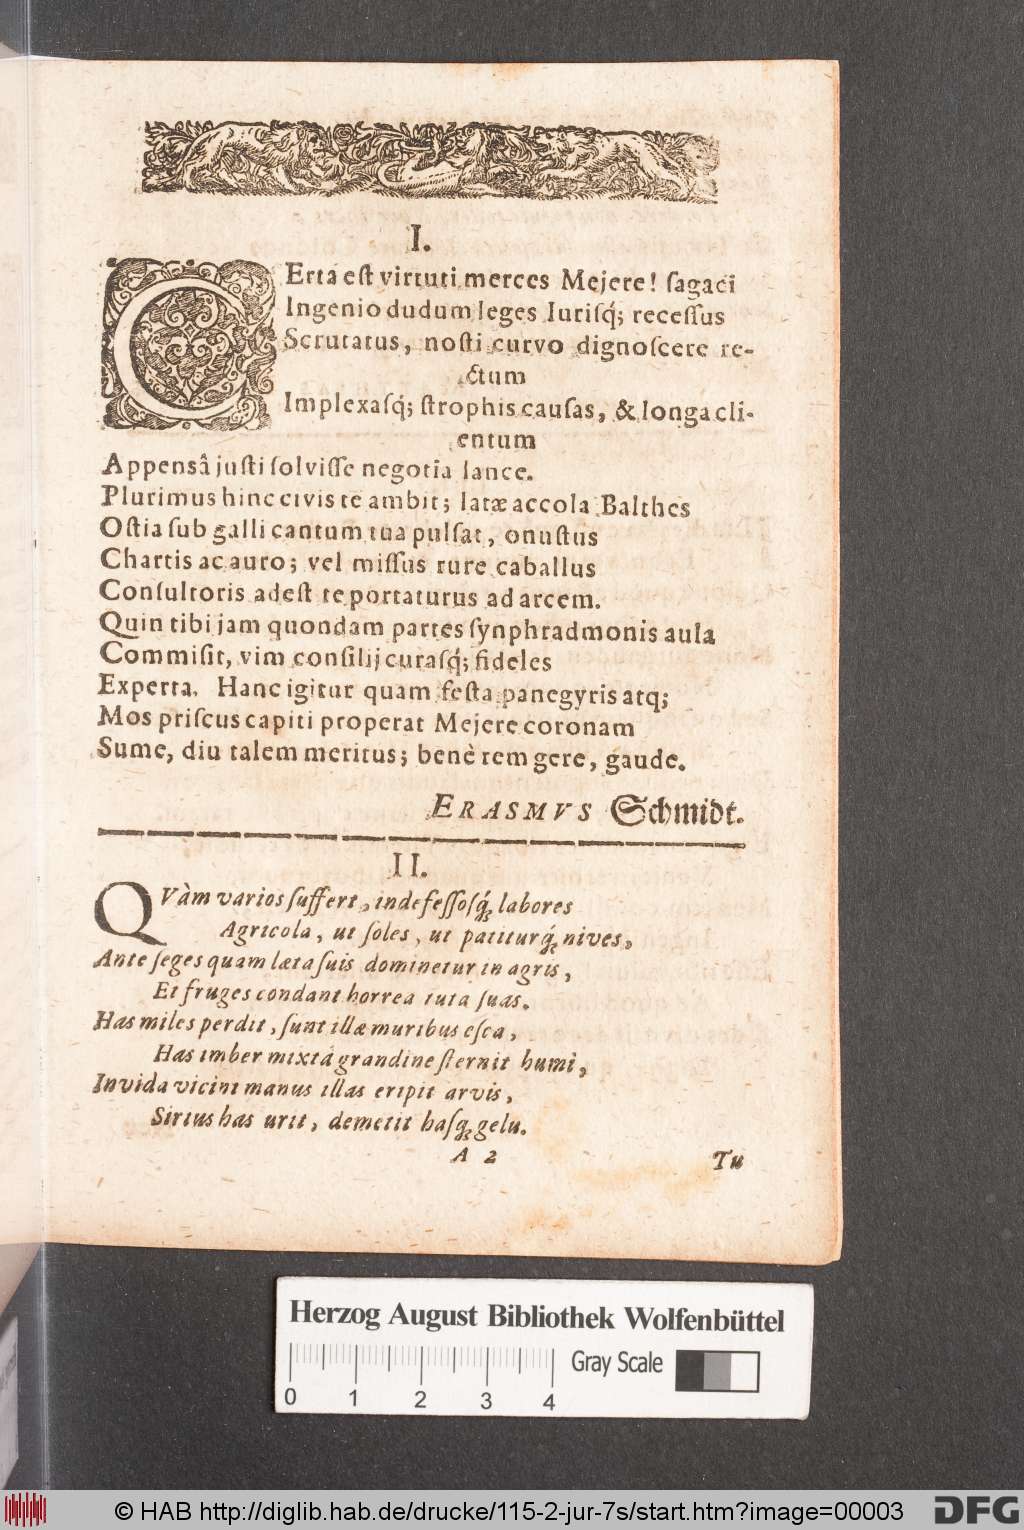 I.
CErta est virtuti merces Mejere! sagaci
Ingenio dudum leges Iurisq́; recessus
Scrutatus, nosti curvo dignoscere re-
ctum
Implexasq́; strophis causas, & longa cli-
entum
Appensâ justi solvisse negotia lance.
Plurimus hinc civis te ambit; latæ accola Balthes
Ostia sub galli cantum tua pulsat, onustus
Chartis ac auro; vel missus rure caballus
Consultoris adest te portaturus ad arcem.
Quin tibi jam quondam partes synphradmonis aula
Commisit, vim consilij curasq́; fideles
Experta. Hanc igitur quam festa panegyris atq;
Mos priscus capiti properat Mejere coronam
Sume, diu talem meritus; benè rem gere, gaude.
ERASMVS Schmidt.
II.
QVàm varios suffert, indefessosq́; labores
Agricola, ut soles, ut patiturq́; nives,
Ante seges quam læta suis dominetur in agris,
Et fruges condant horrea tuta suas.
Has miles perdit, sunt illæ muribus esca,
Has imber mixtâ grandine sternit humi,
Invida vicini manus illas eripit arvis,
Sirius has urit, demetit hasq́; gelu.
A 2 Tu
Herzog August Bibliothek Wolfenbüttel
Gray Scale
0 1 2 3 4
© HAB http://diglib.hab.de/drucke/115-2-jur-7s/start.htm?image=00003
DFG